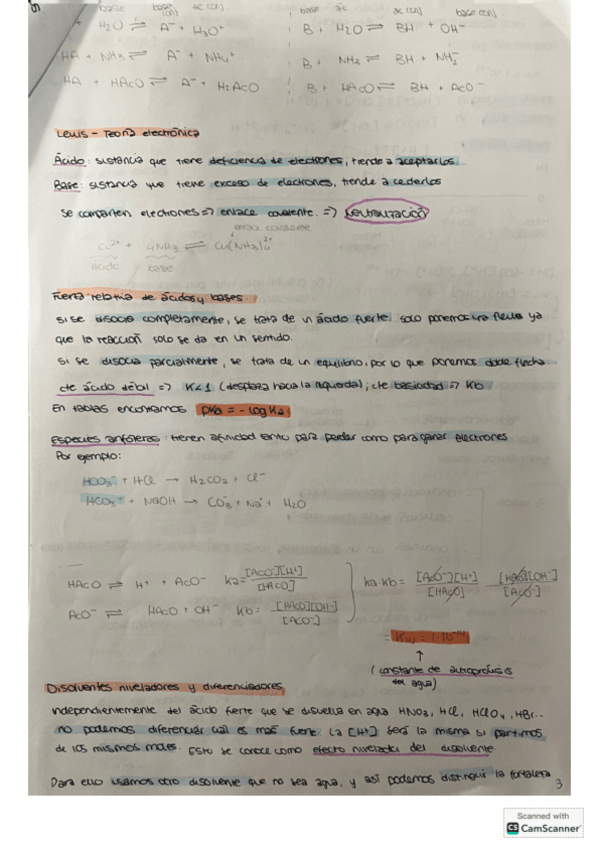 base base (con) ác (con) base ác ác (con) base (con)
+ H2O ⇌ A⁻ + H3O⁺ B + H2O ⇌ BH + OH⁻
HA + NH3 ⇌ A⁻ + NH4⁺ B + NH3 ⇌ BH + NH2⁻
HA + HAcO ⇌ A⁻ + H2AcO B + HAcO ⇌ BH + AcO⁻
Lewis - Teoría electrónica
Ácido: sustancia que tiene deficiencia de electrones, tiende a aceptarlos.
Base: sustancia que tiene exceso de electrones, tiende a cederlos
se comparten electrones => enlace covalente. => neutralización
enlace covalente
Cu²⁺ + 4NH3 ⇌ Cu(NH3)4²⁺
ácido base
Fuerza relativa de ácidos y bases.
si se disocia completamente, se trata de un ácido fuerte. solo ponemos una flecha ya
que la reacción solo se da en un sentido.
si se disocia parcialmente, se trata de un equilibrio, por lo que ponemos doble flecha.
cte ácido débil => K<1 (desplaza hacia la izquierda); cte basicidad => Kb
En tablas encontramos pKa = -log Ka.
Especies anfóteras: tienen afinidad tanto para perder como para ganar electrones
Por ejemplo:
HCO3⁻ + HCl → H2CO2 + Cl⁻
HCO3⁻ + NaOH → CO3⁻ + Na⁺ + H2O
HAcO ⇌ H⁺ + AcO⁻ Ka = [AcO⁻][H⁺] / [HAcO] Ka·Kb = [AcO⁻][H⁺] / [HAcO] [HAcO][OH⁻] / [AcO⁻]
AcO⁻ ⇌ HAcO + OH⁻ Kb = [HAcO][OH⁻] / [AcO⁻]
= Kw = 1·10⁻¹⁴
(constante de autoprótisis
del agua)
Disolventes niveladores y diferenciadores
independientemente del ácido fuerte que se disuelva en agua HNO3, HCl, HClO4, HBr...
no podemos diferenciar cuál es más fuerte. La [H⁺] será la misma si partimos
de los mismos moles. Esto se conoce como efecto nivelador del disolvente.
Para ello usamos otro disolvente que no sea agua, y así podemos distinguir la fortaleza
3
Scanned with
CS CamScanner